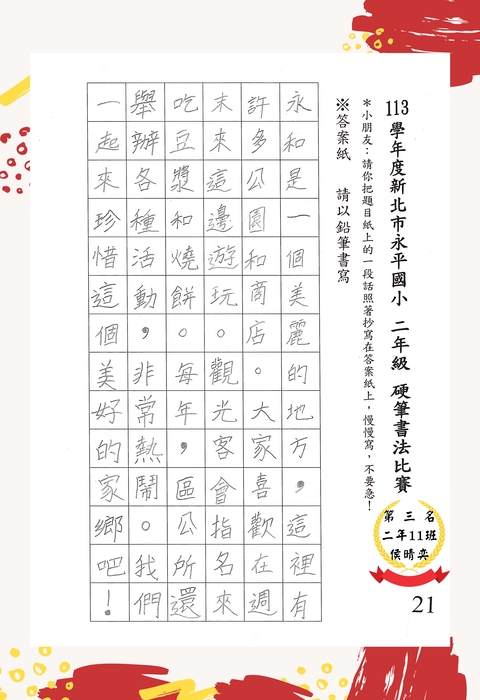 113 學年度新北市永平國小 二年級 硬筆書法比賽
＊小朋友：請你把題目紙上的一段話照著抄寫在答案紙上，慢慢寫，不要急！
※答案紙 請以鉛筆書寫
永和是一個美麗的地方，這裡有
許多公園和商店。大家喜歡在週
末來這邊遊玩。觀光客會指名來
吃豆漿和燒餅。每年，區公所還
舉辦各種活動，非常熱鬧。我們
一起來珍惜這個美好的家鄉吧！
第三名
二年11班
侯晴奕
21